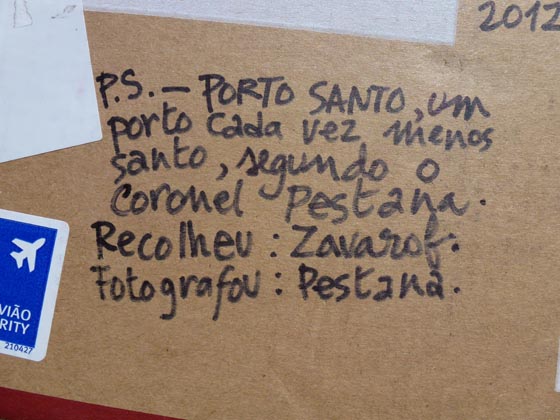 2012
P.S. — PORTO SANTO, um
porto cada vez menos
santo, segundo o
Coronel Pestana.
Recolheu : Zavarof.
Fotografou : Pestana.
VIÃO
RITY
210427